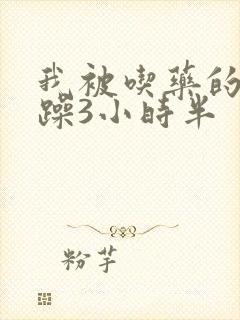 我被喫藥的
躁3小時半
粉芋